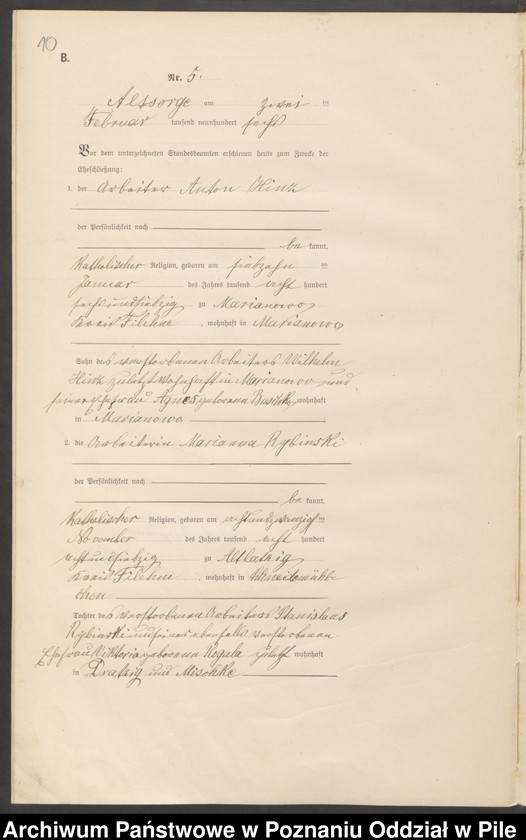 10
B.
Nr. 5.
Altsorge am zwei ten
Februar tausend neunhundert sechs
Vor dem unterzeichneten Standesbeamten erschienen heute zum Zwecke der
Eheschließung:
1. der Arbeiter Anton Hinz
der Persönlichkeit nach
be kannt,
Katholischer Religion, geboren am siebzehn ten
Januar des Jahres tausend acht hundert
sechsundsiebzig zu Marianowo
Kreis Filehne, wohnhaft in Marianowo
Sohn des verstorbenen Arbeiters Wilhelm
Hinz zuletzt wohnhaft in Marianowo und
seiner Ehefrau Agnes geborene wohnhaft
in Marianowo
2. die Arbeiterin Marianna Rybinski
der Persönlichkeit nach
be kannt,
Katholischer Religion, geboren am achtundzwanzigsten
November des Jahres tausend acht hundert
achtundsiebzig zu
Kreis Filehne, wohnhaft in Schneidemüh
chen
Tochter des verstorbenen Arbeiters Stanislaus
Rybinski und seiner ebenfalls verstorbenen
Ehefrau Viktoria geborene Rogala zuletzt wohnhaft
in Dratzig und Mischke
Archiwum Państwowe w Poznaniu Oddział w Pile